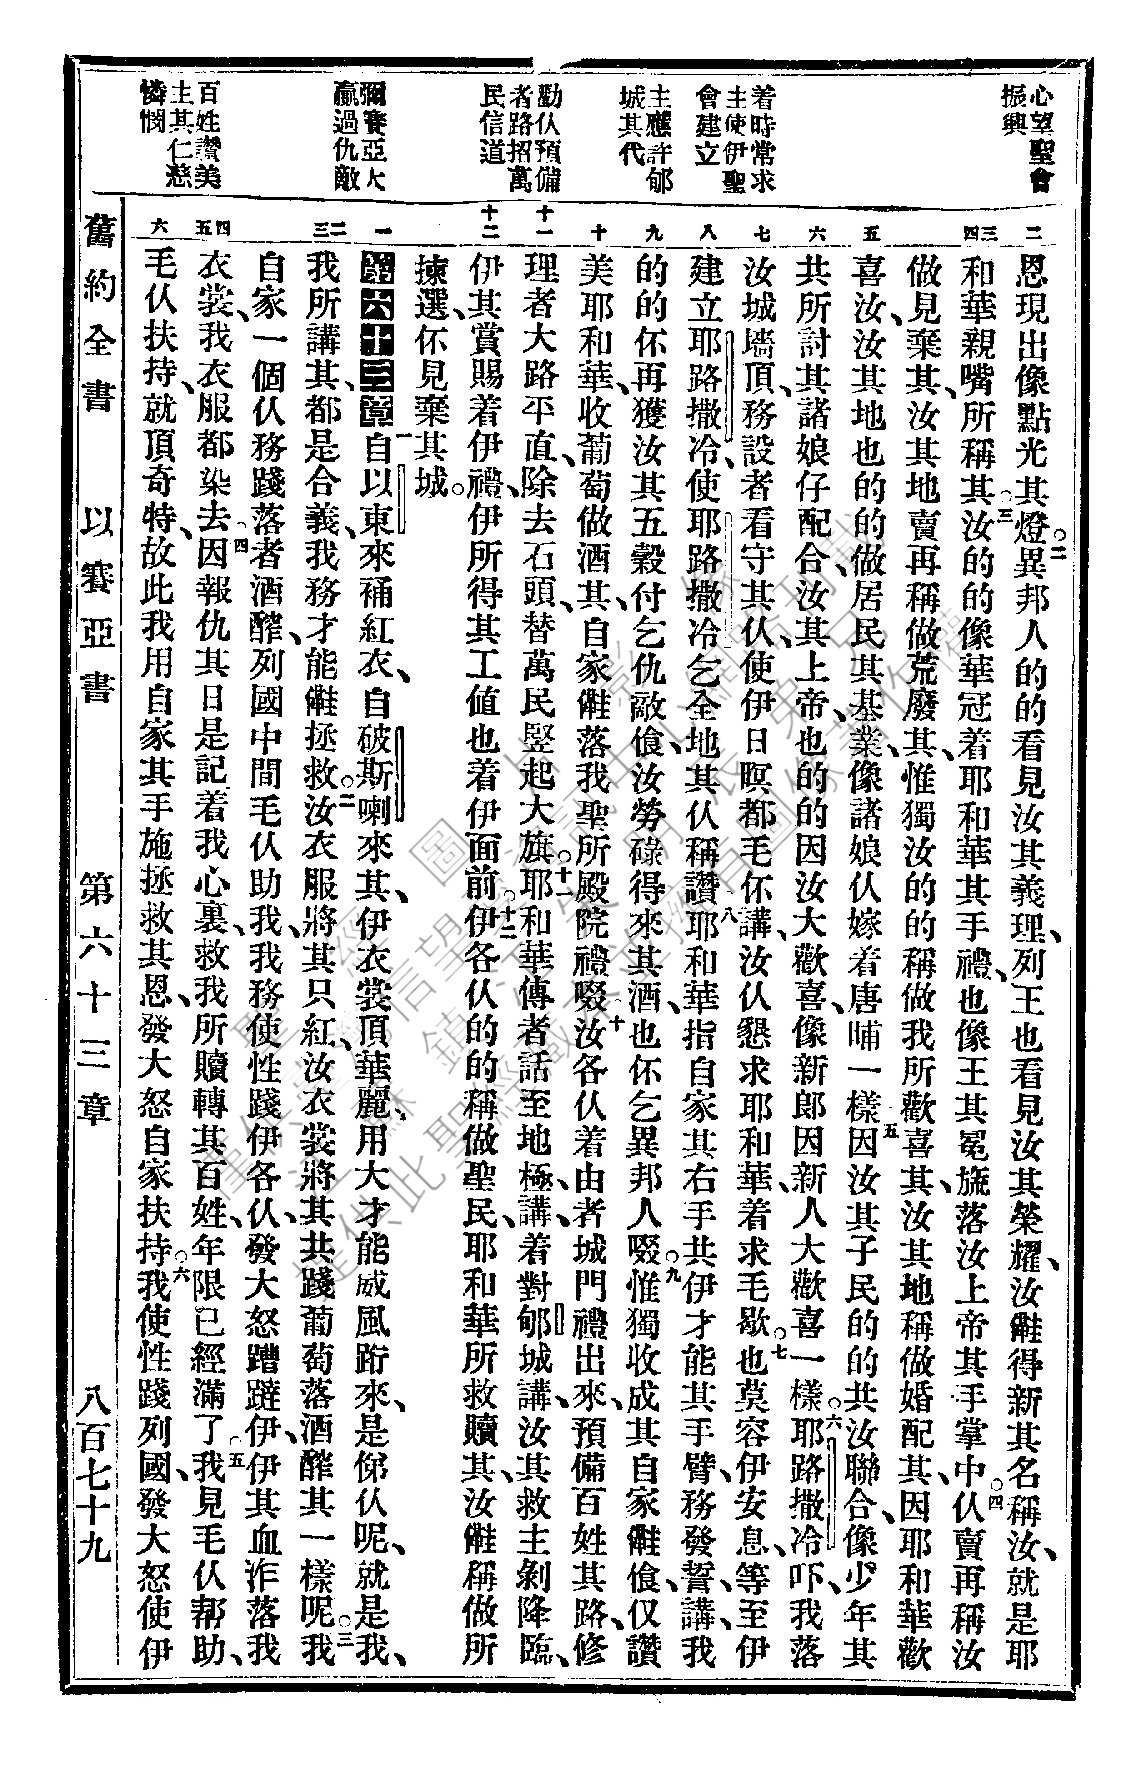 心望聖會
振興
着時常求
主使伊聖
會建立
主應許郇
城其代
勸仈預備
者路招萬
民信道
彌賽亞大
贏過仇敵
百姓讚美
主其仁慈
憐憫
二
三
四
五
六
七
八
九
十
十一
十二
一
二
三
四
五
六
恩現出像點光其燈○二異邦人的的看見汝其義理、列王也看見汝其榮耀、汝㑚得新其名稱汝、就是耶
和華親嘴所稱其○三汝的的像華冠着耶和華其手禮、也像王其冕旒落汝上帝其手掌中○四仈賣再稱汝
做見棄其、汝其地賣再稱做荒廢其、惟獨汝的的稱做我所歡喜其、汝其地稱做婚配其、因耶和華歡
喜汝、汝其地也的的做居民其基業、像諸娘仈嫁着唐晡一樣○五因汝其子民的的共汝聯合、像少年其
共所討其諸娘仔配合、汝其上帝也的的因汝大歡喜、像新郎因新人大歡喜一樣○六耶路撒冷吓、我落
汝城墻頂、務設者看守其仈、使伊日暝都毛伓講、汝仈懇求耶和華、着求毛歇○七也莫容伊安息、等至伊
建立耶路撒冷、使耶路撒冷乞全地其仈稱讚○八耶和華指自家其右手共伊才能其手臂、務發誓、講、我
的的伓再獲汝其五穀付乞仇敵飧、汝勞碌得來其酒、也伓乞異邦人啜○九惟獨收成其自家㑚飧、仅讚
美耶和華、收葡萄做酒其、自家㑚落我聖所殿院禮啜○十汝各仈着由者城門禮出來、預備百姓其路、修
理者大路平直、除去石頭、替萬民竪起大旗○十一耶和華傳者話至地極、講、着對郇城講、汝其救主剝降臨、
伊其賞賜着伊禮、伊所得其工值也着伊面前○十二伊各仈的的稱做聖民、耶和華所救贖其、汝㑚稱做所
揀選伓見棄其城○
第六十三章一自以東來䘄紅衣、自破斯喇來其、伊衣裳頂華麗、用大才能威風跨來、是俤仈呢、就是我、
我所講其、都是合義、我務才能㑚拯救○二汝衣服將其只紅、汝衣裳將其共踐葡萄落酒醡其一樣呢○三我
自家一個仈務踐落者酒醡、列國中間毛仈助我、我務使性踐伊各仈、發大怒蹧躂伊、伊其血泎落我
衣裳、我衣服都染去○四因報仇其日是記着我心裏、救我所贖轉其百姓、年限已經滿了○五我見毛仈帮助、
毛仈扶持、就頂奇特、故此我用自家其手施拯救其恩、發大怒自家扶持○六我使性踐列國、發大怒使伊
舊約全書 以賽亞書 第六十三章 八百七十九